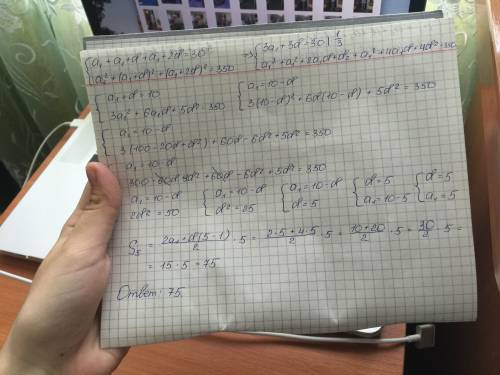 {a₁ + a₁ + d + a₁ + 2d = 30 → {3a₁ + 3d = 30 | 1/3
{a₁² + (a₁ + d)² + (a₁ + 2d)² = 350 {a₁² + a₁² + 2a₁d + d² + a₁² + 4a₁d + 4d² = 350
{a₁ + d = 10 {a₁ = 10 - d
{3a₁² + 6a₁d + 5d² = 350 {3(10 - d)² + 6d(10 - d) + 5d² = 350
{a₁ = 10 - d
{3(100 - 20d + d²) + 60d - 6d² + 5d² = 350
a₁ = 10 - d
300 - 60d + 3d² + 60d - 6d² + 5d² = 350
a₁ = 10 - d {a₁ = 10 - d {a₁ = 10 - d {d = 5 {d = 5
2d² = 50 {d² = 25 {d = 5 {a₁ = 10 - 5 {a₁ = 5
S₅ = (2a₁ + d(5 - 1))/2 · 5 = (2·5 + 4·5)/2 · 5 = (10 + 20)/2 · 5 = 30/2 · 5 =
= 15 · 5 = 75
Ответ: 75.